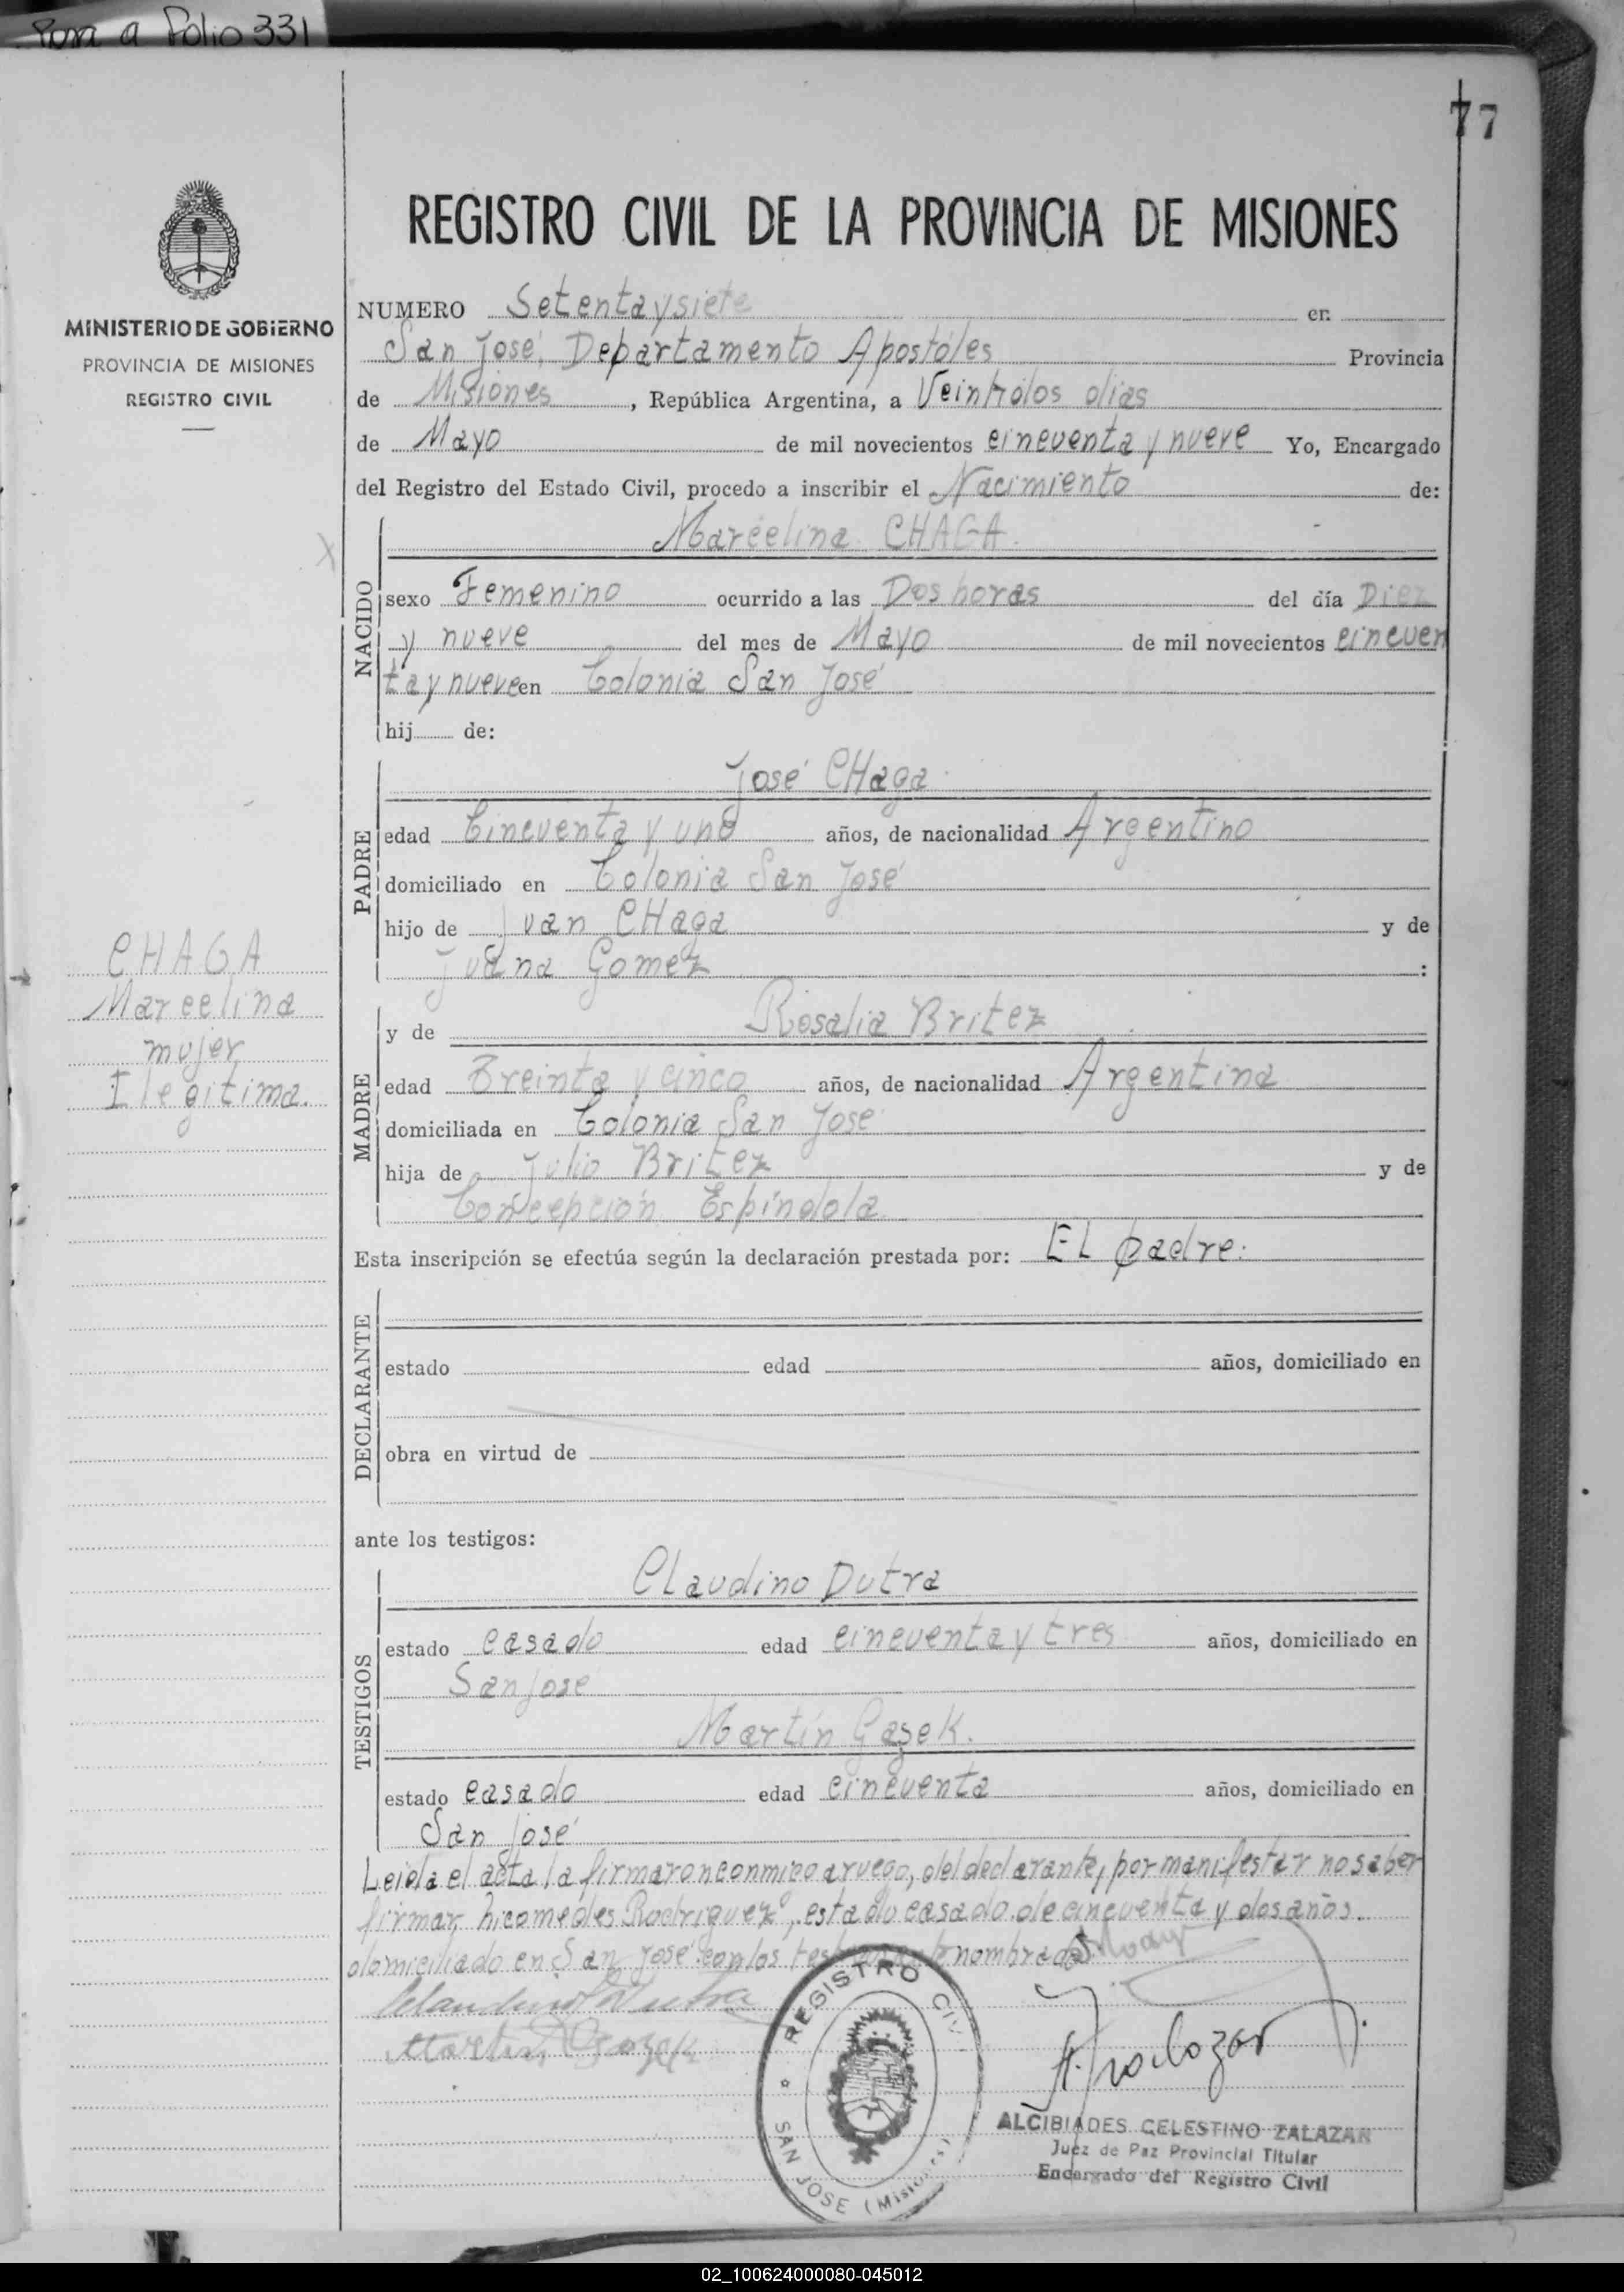 Pasa a Folio 331
77
MINISTERIO DE GOBIERNO
PROVINCIA DE MISIONES
REGISTRO CIVIL
CHAGA
Marcelina
mujer
Ilegitima.
REGISTRO CIVIL DE LA PROVINCIA DE MISIONES
NUMERO Setenta y siete en
San José, Departamento Apostóles Provincia
de Misiones, República Argentina, a Veintidos dias
de Mayo de mil novecientos cincuenta y nueve Yo, Encargado
del Registro del Estado Civil, procedo a inscribir el Nacimiento de:
NACIDO
Marcelina CHAGA.
sexo Femenino ocurrido a las Dos horas del día Diez
y nueve del mes de Mayo de mil novecientos cincuen
ta y nueve en Colonia San José
hij de:
PADRE
José CHaga
edad Cincuenta y uno años, de nacionalidad Argentino
domiciliado en Colonia San José
hijo de Juan CHaga y de
Juana Gomez :
MADRE
y de Rosalia Britez
edad Treinta y cinco años, de nacionalidad Argentina
domiciliada en Colonia San José
hija de Julio Britez y de
Concepción Espíndola
Esta inscripción se efectúa según la declaración prestada por: EL padre.
DECLARANTE
estado edad años, domiciliado en
obra en virtud de
ante los testigos:
TESTIGOS
Claudino Dutra
estado casado edad cincuenta y tres años, domiciliado en
San Jose
Martín Gasek.
estado casado edad cincuenta años, domiciliado en
San José
Leida el acta la firmaron conmigo a ruego, del declarante, por manifestar no saber
firmar, Nicomedes Rodriguez, estado casado de cincuenta y dos años.
domiciliado en San José con los nombrados.
Claudino Dutra
Martin
REGISTRO CIVIL
SAN JOSE (Misiones)
ALCIBIADES CELESTINO ZALAZAR
Juez de Paz Provincial Titular
Encargado del Registro Civil
02_100624000080-045012